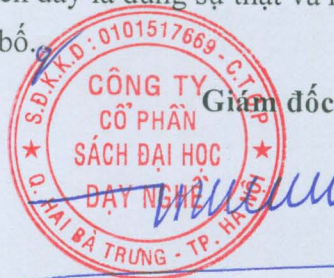 đây là đúng sự thật và
bố.
Giám đốc
S.Đ.K.K.D: 0101517669 - C.T.C.P
CÔNG TY
CỔ PHẦN
SÁCH ĐẠI HỌC
DẠY NGHỀ
Q. HAI BÀ TRƯNG - TP. HÀ NỘI